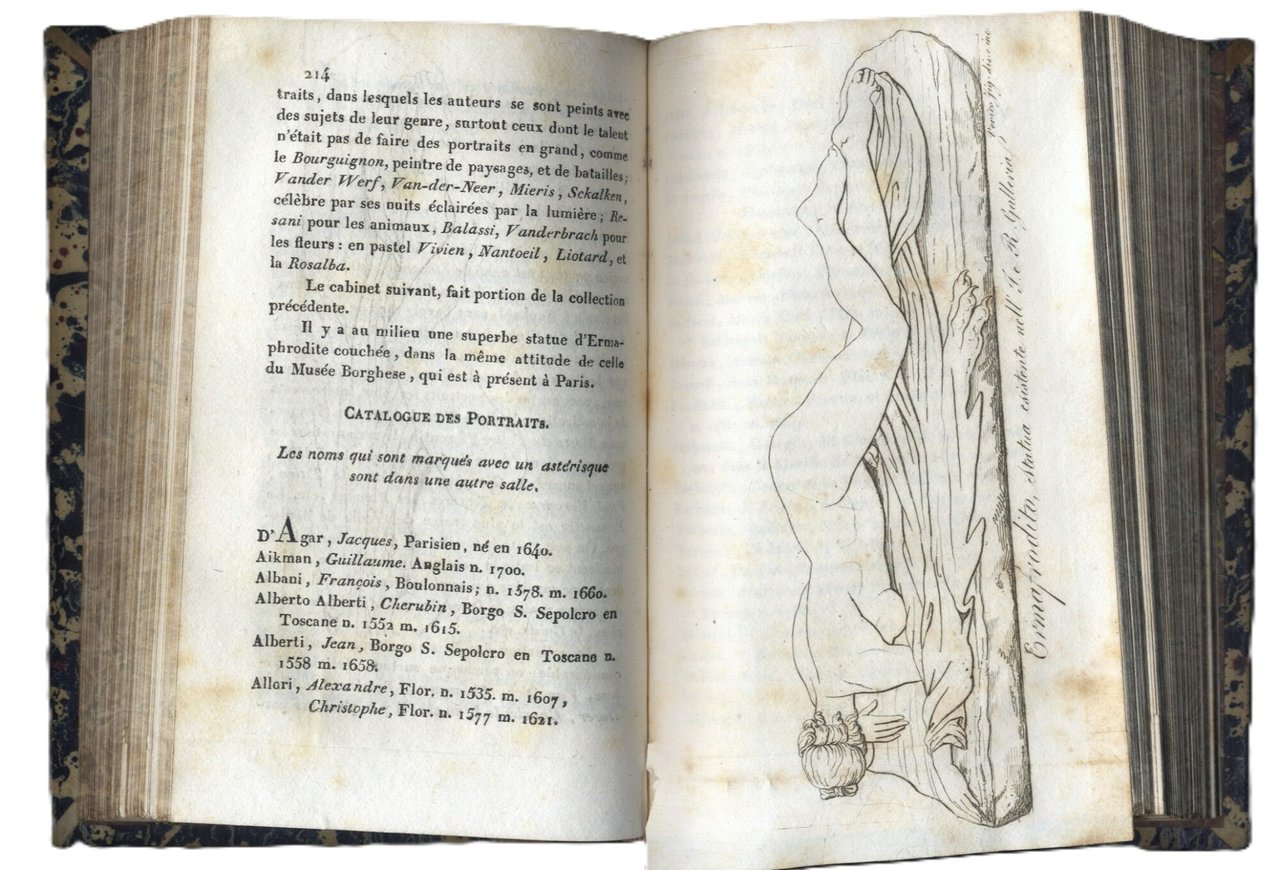 214
traits, dans lesquels les auteurs se sont peints avec
des sujets de leur genre, surtout ceux dont le talent
n'était pas de faire des portraits en grand, comme
le Bourguignon, peintre de paysages, et de batailles;
Vander Werf, Van-der-Neer, Mieris, Sckalken,
célèbre par ses nuits éclairées par la lumière; Re-
sani pour les animaux, Balassi, Vanderbrach pour
les fleurs: en pastel Vivien, Nantoeil, Liotard, et
la Rosalba.
Le cabinet suivant, fait portion de la collection
précédente.
Il y a au milieu une superbe statue d'Erma-
phrodite couchée, dans la même attitude de celle
du Musée Borghese, qui est à présent à Paris.
CATALOGUE DES PORTRAITS.
Les noms qui sont marqués avec un astérisque
sont dans une autre salle.
D'Agar, Jacques, Parisien, né en 1640.
Aikman, Guillaume. Anglais n. 1700.
Albani, François, Boulonnais; n. 1578. m. 1660.
Alberto Alberti, Cherubin, Borgo S. Sepolcro en
Toscane n. 1552 m. 1615.
Alberti, Jean, Borgo S. Sepolcro en Toscane n.
1558 m. 1658.
Allori, Alexandre, Flor. n. 1535. m. 1607,
Christophe, Flor. n. 1577 m. 1621.
Ermafrodito, statua esistente nell' I. e R. Galleria